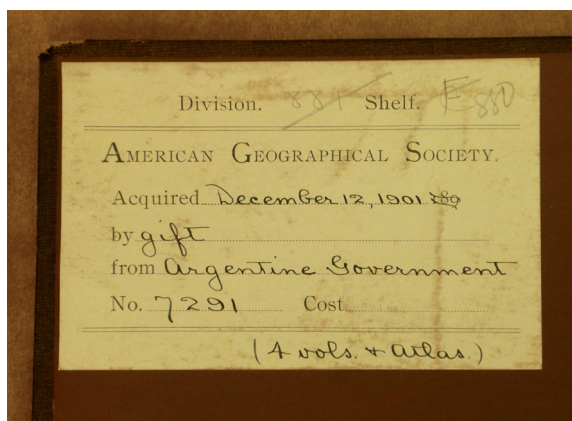 Division. 881 Shelf. E 880
AMERICAN GEOGRAPHICAL SOCIETY.
Acquired December 12, 1901
by gift
from Argentine Government
No. 7291 Cost
(4 vols. + atlas.)